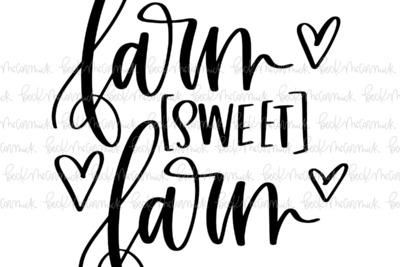 farm
[SWEET]
farm